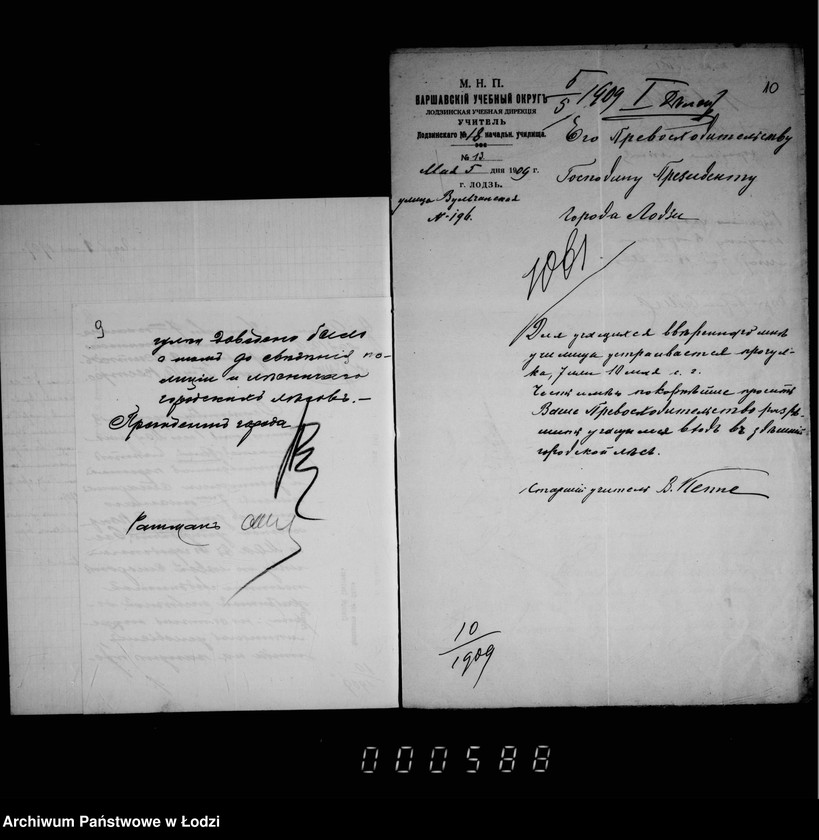 9
гулки доведено было
о томъ до свѣдѣнія по-
лиціи и лѣсничаго
городскихъ лѣсовъ.-
Президентъ города
Ратманъ
10
М. Н. П.
ВАРШАВСКІЙ УЧЕБНЫЙ ОКРУГЪ
ЛОДЗИНСКАЯ УЧЕБНАЯ ДИРЕКЦІЯ
УЧИТЕЛЬ
Лодзинскаго № 18 начальн. училища.
№ 13
Мая 5 дня 1909 г.
г. ЛОДЗЬ.
улица Вульчанская
№ 196.
5/5 1909 I
Его Превосходительству
Господину Президенту
города Лодзи
1061
Для учащихся ввѣреннаго мнѣ
училища устраивается прогул-
ка, 7 или 10 мая с. г.
Честь имѣю покорнѣйше просить
Ваше Превосходительство разрѣ-
шить учащимся входъ въ здѣшній
городской лѣсъ.
Старшій учитель В. Пеппе
10/1909
000588
Archiwum Państwowe w Łodzi